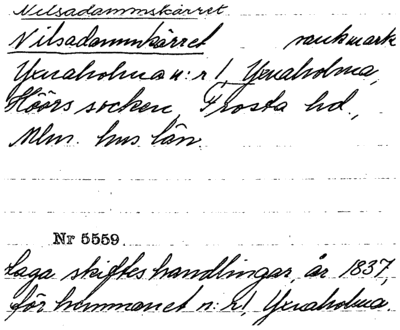 Nilsadammskärret
Nilsadammkärret sankmark
Yxnaholma n:r 1, Yxnaholma,
Höörs socken Frosta hd.,
Mlm. hus län
Nr 5559
Laga skifteshandlingar år 1837,
för hemmanet n:r 1, Yxnaholma.